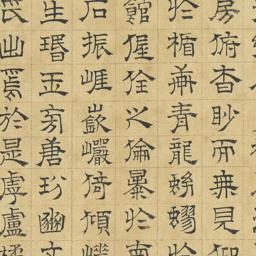 房俯杳眇而無見仰
於楯軒青龍蚴蟉於
館偓佺之倫暴於南
石振崕嶔巖倚傾嵯
生瑉玉旁唐玢豳文
氏出焉於是虖盧橘